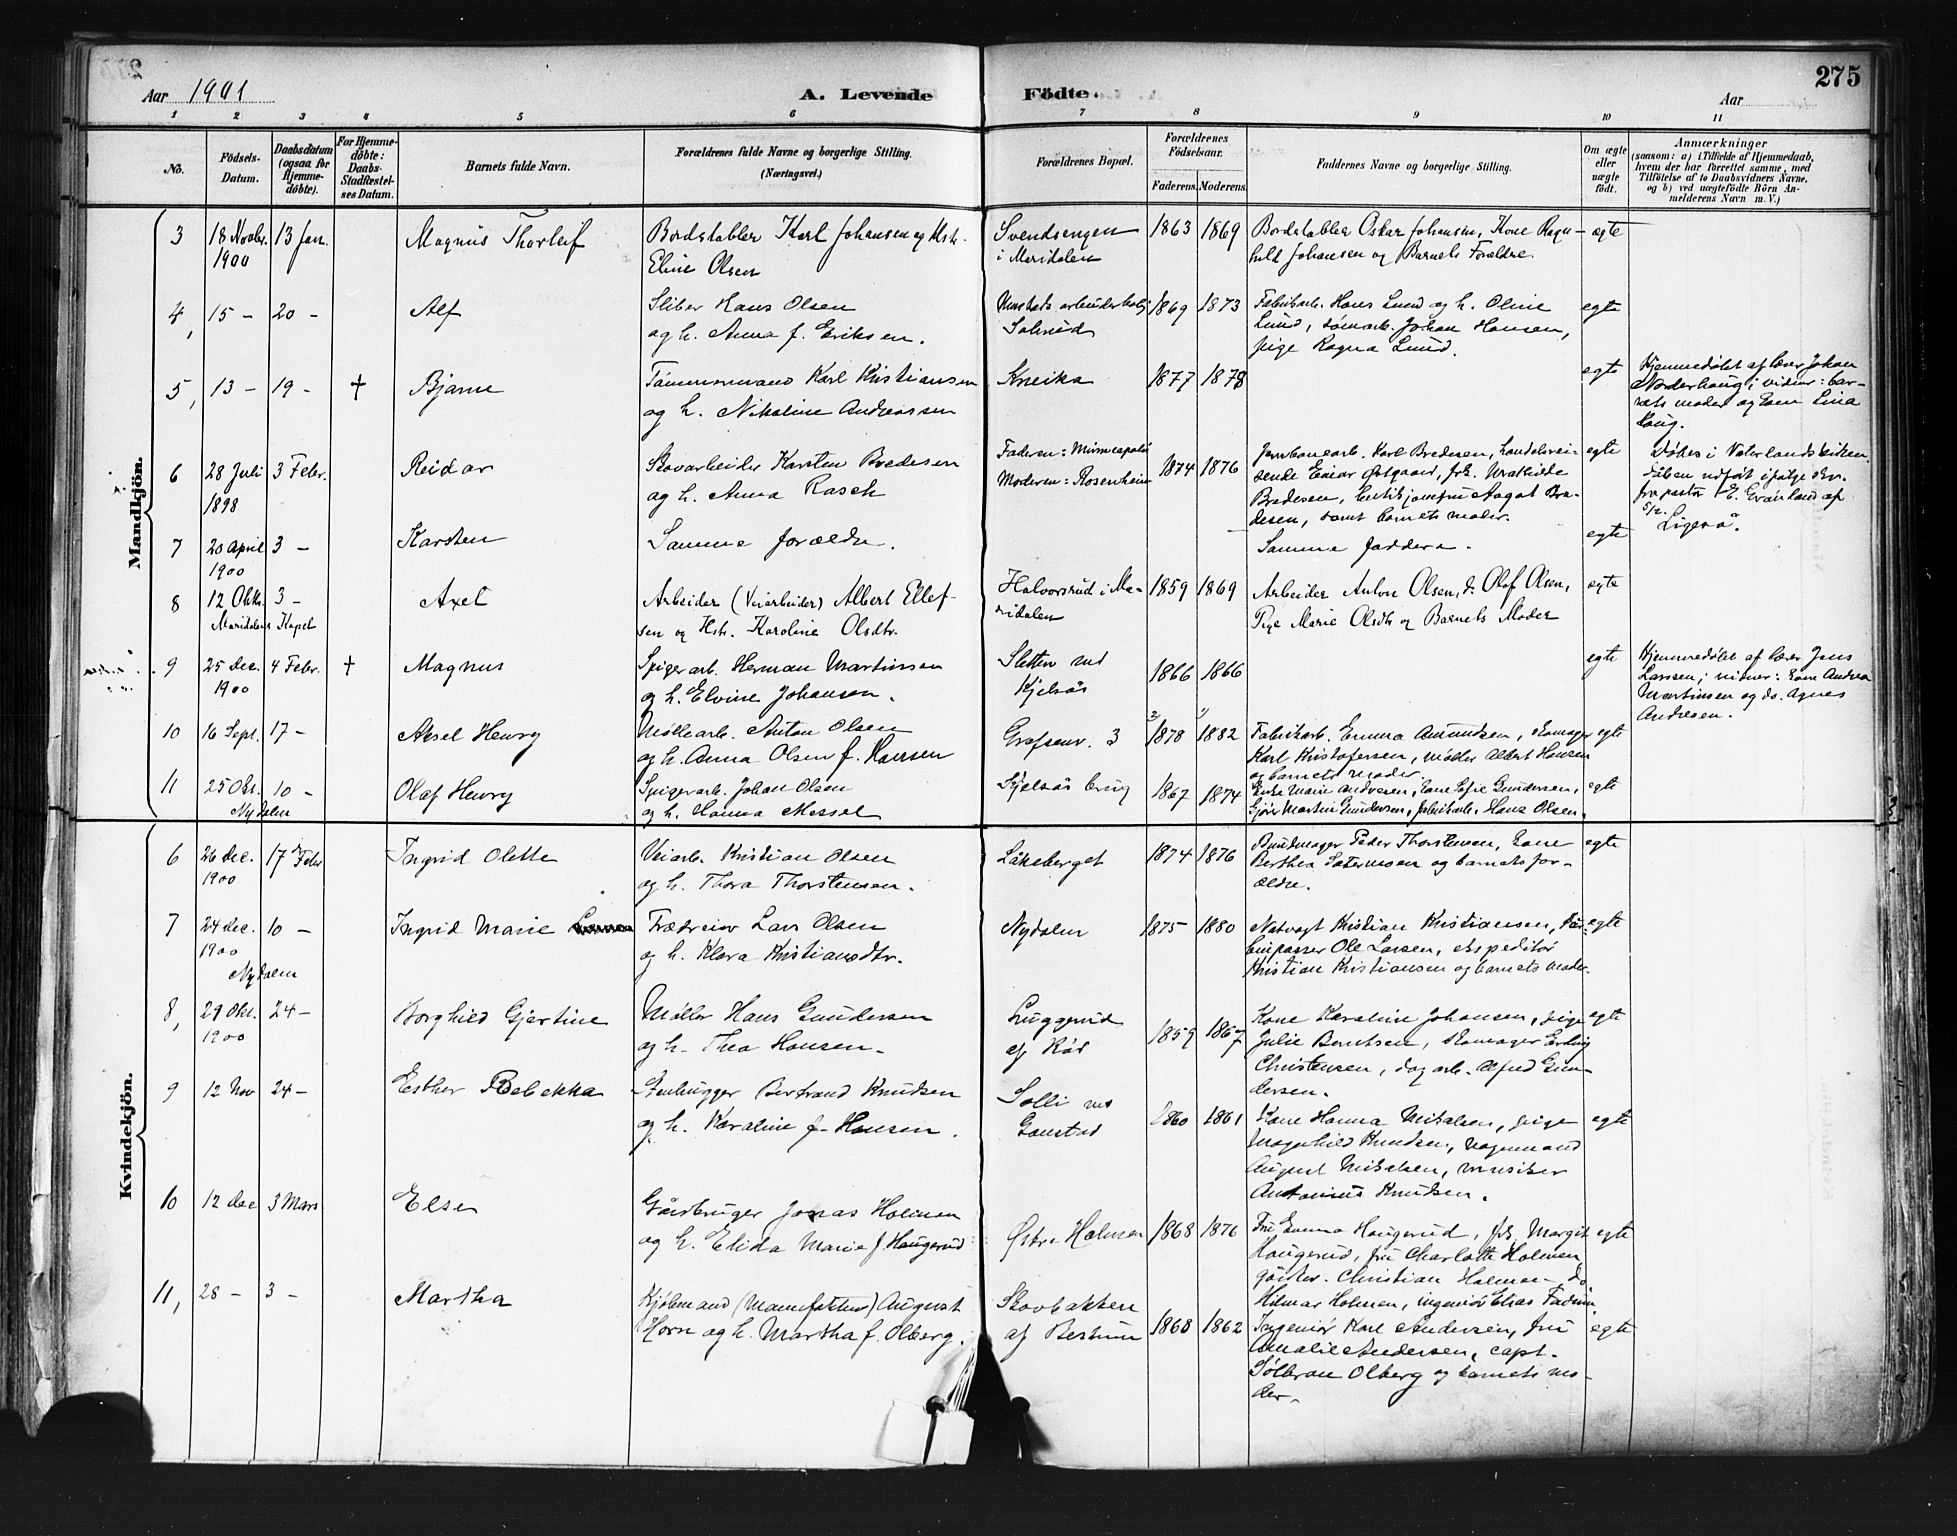 275
Aar 1901
A. Levende Födte.
Aar
1 2 3 4 5 6 7 8 9 10 11
No.
Födsels-Datum.
Daabsdatum (ogsaa for Hjemme-döbte).
For Hjemme-döbte: Daabs-Stadfæstel-ses Datum.
Barnets fulde Navn.
Forældrenes fulde Navne og borgerlige Stilling.
(Næringsvei.)
Forældrenes Bopæl.
Forældrenes Födselsaar.
Faderens. Moderens.
Faddernes Navne og borgerlige Stilling.
Om ægte eller uægte født.
Anmærkninger
(saasom: a) i Tilfælde af Hjemmedaab,
hvem der har forrettet samme, med
Tilföielse af to Daabsvidners Navne,
og b) ved uægtefödte Börn An-
melderens Navn m. V.)
Mandkjön.
3 18 Novbr. 1900 13 Jan. Magnus Thorleif
Bordstabler Karl Johansen og Hst.
Eline Olsen
Svendsengen
i Maridalen
1863 1869
Bordstabler Oskar Johansen, Kone Ragn-
hild Johansen og Barnets Forældre.
ægte
4, 15 - 20 - Alf
Sliber Hans Olsen
og h. Anna f. Eriksen.
Solerud
1869 1873
Fabrikarb. Hans Lund og h. Oline
Lund, tømarb. Johan Hansen,
pige Ragna Lund.
egte
5, 13 - 19 - † Bjarne
Tømmermand Karl Kristiansen
og h. Nikoline Andreassen
Kneika
1877 1878
egte
Hjemmedøbt af lærer Johan
Nordenhaug; vidner: bar-
nets moder og kone Lina
Haug.
6 28 Juli 1898 3 Febr. Reidar
Skovarbeider Karsten Bredesen
og h. Anna Rasch
Faderen: Minneapolis
Moderen: Rosenheim
1874 1876
Jernbanearb. Karl Bredesen, handelsrei-
sende Einar Østgaard, frk. Mathilde
Bredesen, butikjomfru Aagot Bre-
desen, samt barnets moder.
egte
Døbes i Vaterlandskirken.
Dåben udført ifølge skr.
fra pastor E. Grönland af
5/2.
7 20 April 1900 3 - Karsten
Samme forældre.
Samme faddere.
egte
Ligeså.
8 12 Okt. 3 -
Maridalens Kapel
Axel
Arbeider (Veiarbeider) Albert Ellef-
sen og Hst. Karoline Olsdtr.
Halvorsrud i Ma-
ridalen
1859 1869
Arbeider Anton Olsen, do Olaf Olsen,
Pige Marie Olsdtr og Barnets Moder
egte
9 25 Dec. 1900 4 Febr. † Magnus
Spigerarb. Herman Martinsen
og h. Elvine Johansen.
Sletten ved
Kjelsås
1866 1866
egte
Hjemmedøbt af lærer Jens
Larssen; vidner: kone Andrea
Martinsen og do. Agnes
Andresen.
10 16 Sept. 17 - Aksel Henry
Møllearb. Anton Olsen
og h. Anna Olsen f. Hansen
Grefsenv. 3
1878 1882
Fabrikarb. Emma Amundsen, Skomager
Karl Kristofersen, møller Albert Hansen
og barnets moder.
egte
11 25 Okt. 10 -
Nydalen
Olaf Henry
Spigerarb. Johan Olsen
og h. Hanna Messel
Kjelsås brug
1867 1874
Enke Marie Andresen, kone Sofie Gundersen,
Gjører Martin Gundersen, fabrikarb. Hans Olsen.
egte
Kvindekjön.
6 26 Dec. 1900 17 Febr Ingrid Olette
Veiarb. Kristian Olsen
og h. Thora Thorstensen.
Låkeberget
1874 1876
Buntmager Peder Thorstensen, kone
Berthea Sætermoen og barnets for-
ældre.
egte
7 24 dec. 1900 10 -
Nydalen
Ingrid Marie
Lars Olsen
og h. Klara Kristiansdtr.
Nydalen
1875 1880
Natvagt Kristian Kristiansen,
Ole Larsen, ekspeditør
Kristian Kristiansen og barnets moder.
egte
8, 29 Okt. 1900 24 - Borghild Gjertine
Møller Hans Gundersen
og h. Thea Hansen.
Luggerud
af Rød
1859 1867
Kone Karoline Johansen, pige
Julie Berntsen, Skomager Erling
Christensen, dagarb. Alfred Gun-
dersen.
egte
9 12 Nov 24 - Esther Rebekka
Stenhugger Bertrand Knudsen
og h. Karoline f. Hansen.
Solli ved
Gaustad
1860 1861
Kone Hanna Mikalsen, pige
Magnhild Knudsen, vognmand
August Mikalsen, musiker
Antonius Knudsen.
egte
10 12 dec 3 Mars Else
Gårdbruger Jonas Holmen
og h. Elida Marie f. Haugerud
Østre Holmen
1868 1876
Fru Emma Haugerud, frk. Margit
Haugerud, fru Charlotte Holmen
gårdbr. Christian Holmen, do
Hilmar Holmen, ingeniør Elias Fadum.
egte
11, 28 - 3 - Martha
Kjøbmand (Manufaktur) August
Horn og h. Martha f. Olberg.
Skovbakken
af Bestum
1868 1862
Ingeniør Karl Andersen, fru
Amalie Andersen, capt.
Sølbran Olberg og barnets mo-
der.
egte